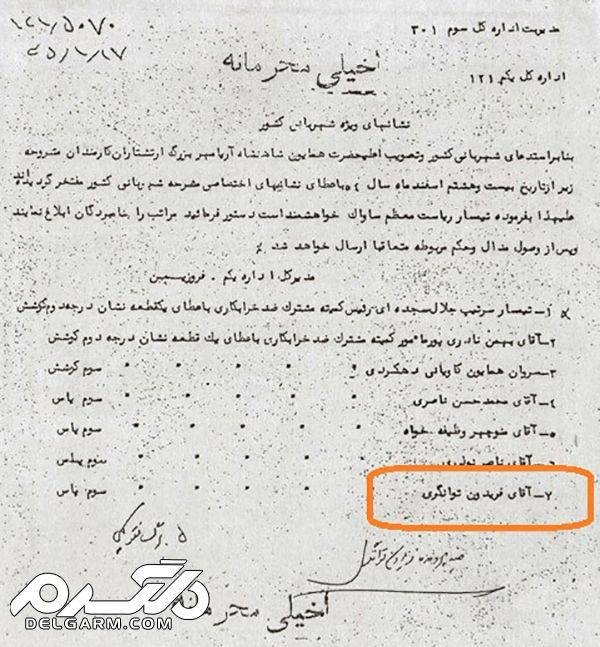 مدیریت اداره کل سوم ۳۰۱
۱۲۱/۵۰۷۰
۴۵/۱/۱۷
خیلی محرمانه
اداره کل یکم ۱۲۱
نشانهای ویژه شهربانی کشور
بنابراستدعای شهربانی کشور و تصویب اعلیحضرت همایون شاهنشاه آریامهر بزرگ ارتشتاران کارمندان مشروحه
زیر از تاریخ بیست و هشتم اسفند ماه سال باعطای نشانهای اختصاصی مشرحه شهربانی کشور مفتخر گردیده اند
علیهذا بفرموده تیمسار ریاست معظم ساواک خواهشمند است دستور فرمائید مراتب را بنامبردگان ابلاغ نمایند
وپس از وصول مدال و حکم مربوطه متعاقبا ارسال خواهد شد
مدیرکل اداره یکم .
۱- تیمسار سرتیپ جلال سجده ای رئیس کمیته مشترک ضد خرابکاری باعطای یکقطعه نشان درجه دوم کوشش
۲- آقای بهمن نادری پور مامور کمیته مشترک ضد خرابکاری باعطای یک قطعه نشان درجه دوم کوشش
۳- سروان همایون کاویانی دهکردی " " " " " سوم کوشش
۴- آقای محمدحسن ناصری " " " " " سوم پاس
۵- آقای منوچهر وظیفه خواه " " " " " سوم پاس
۶- آقای ناصر نوذری " " " " " سوم پاس
۷- آقای فریدون توانگری " " " " سوم پاس
خیلی محرمانه
دلگرم
DELGARM.COM